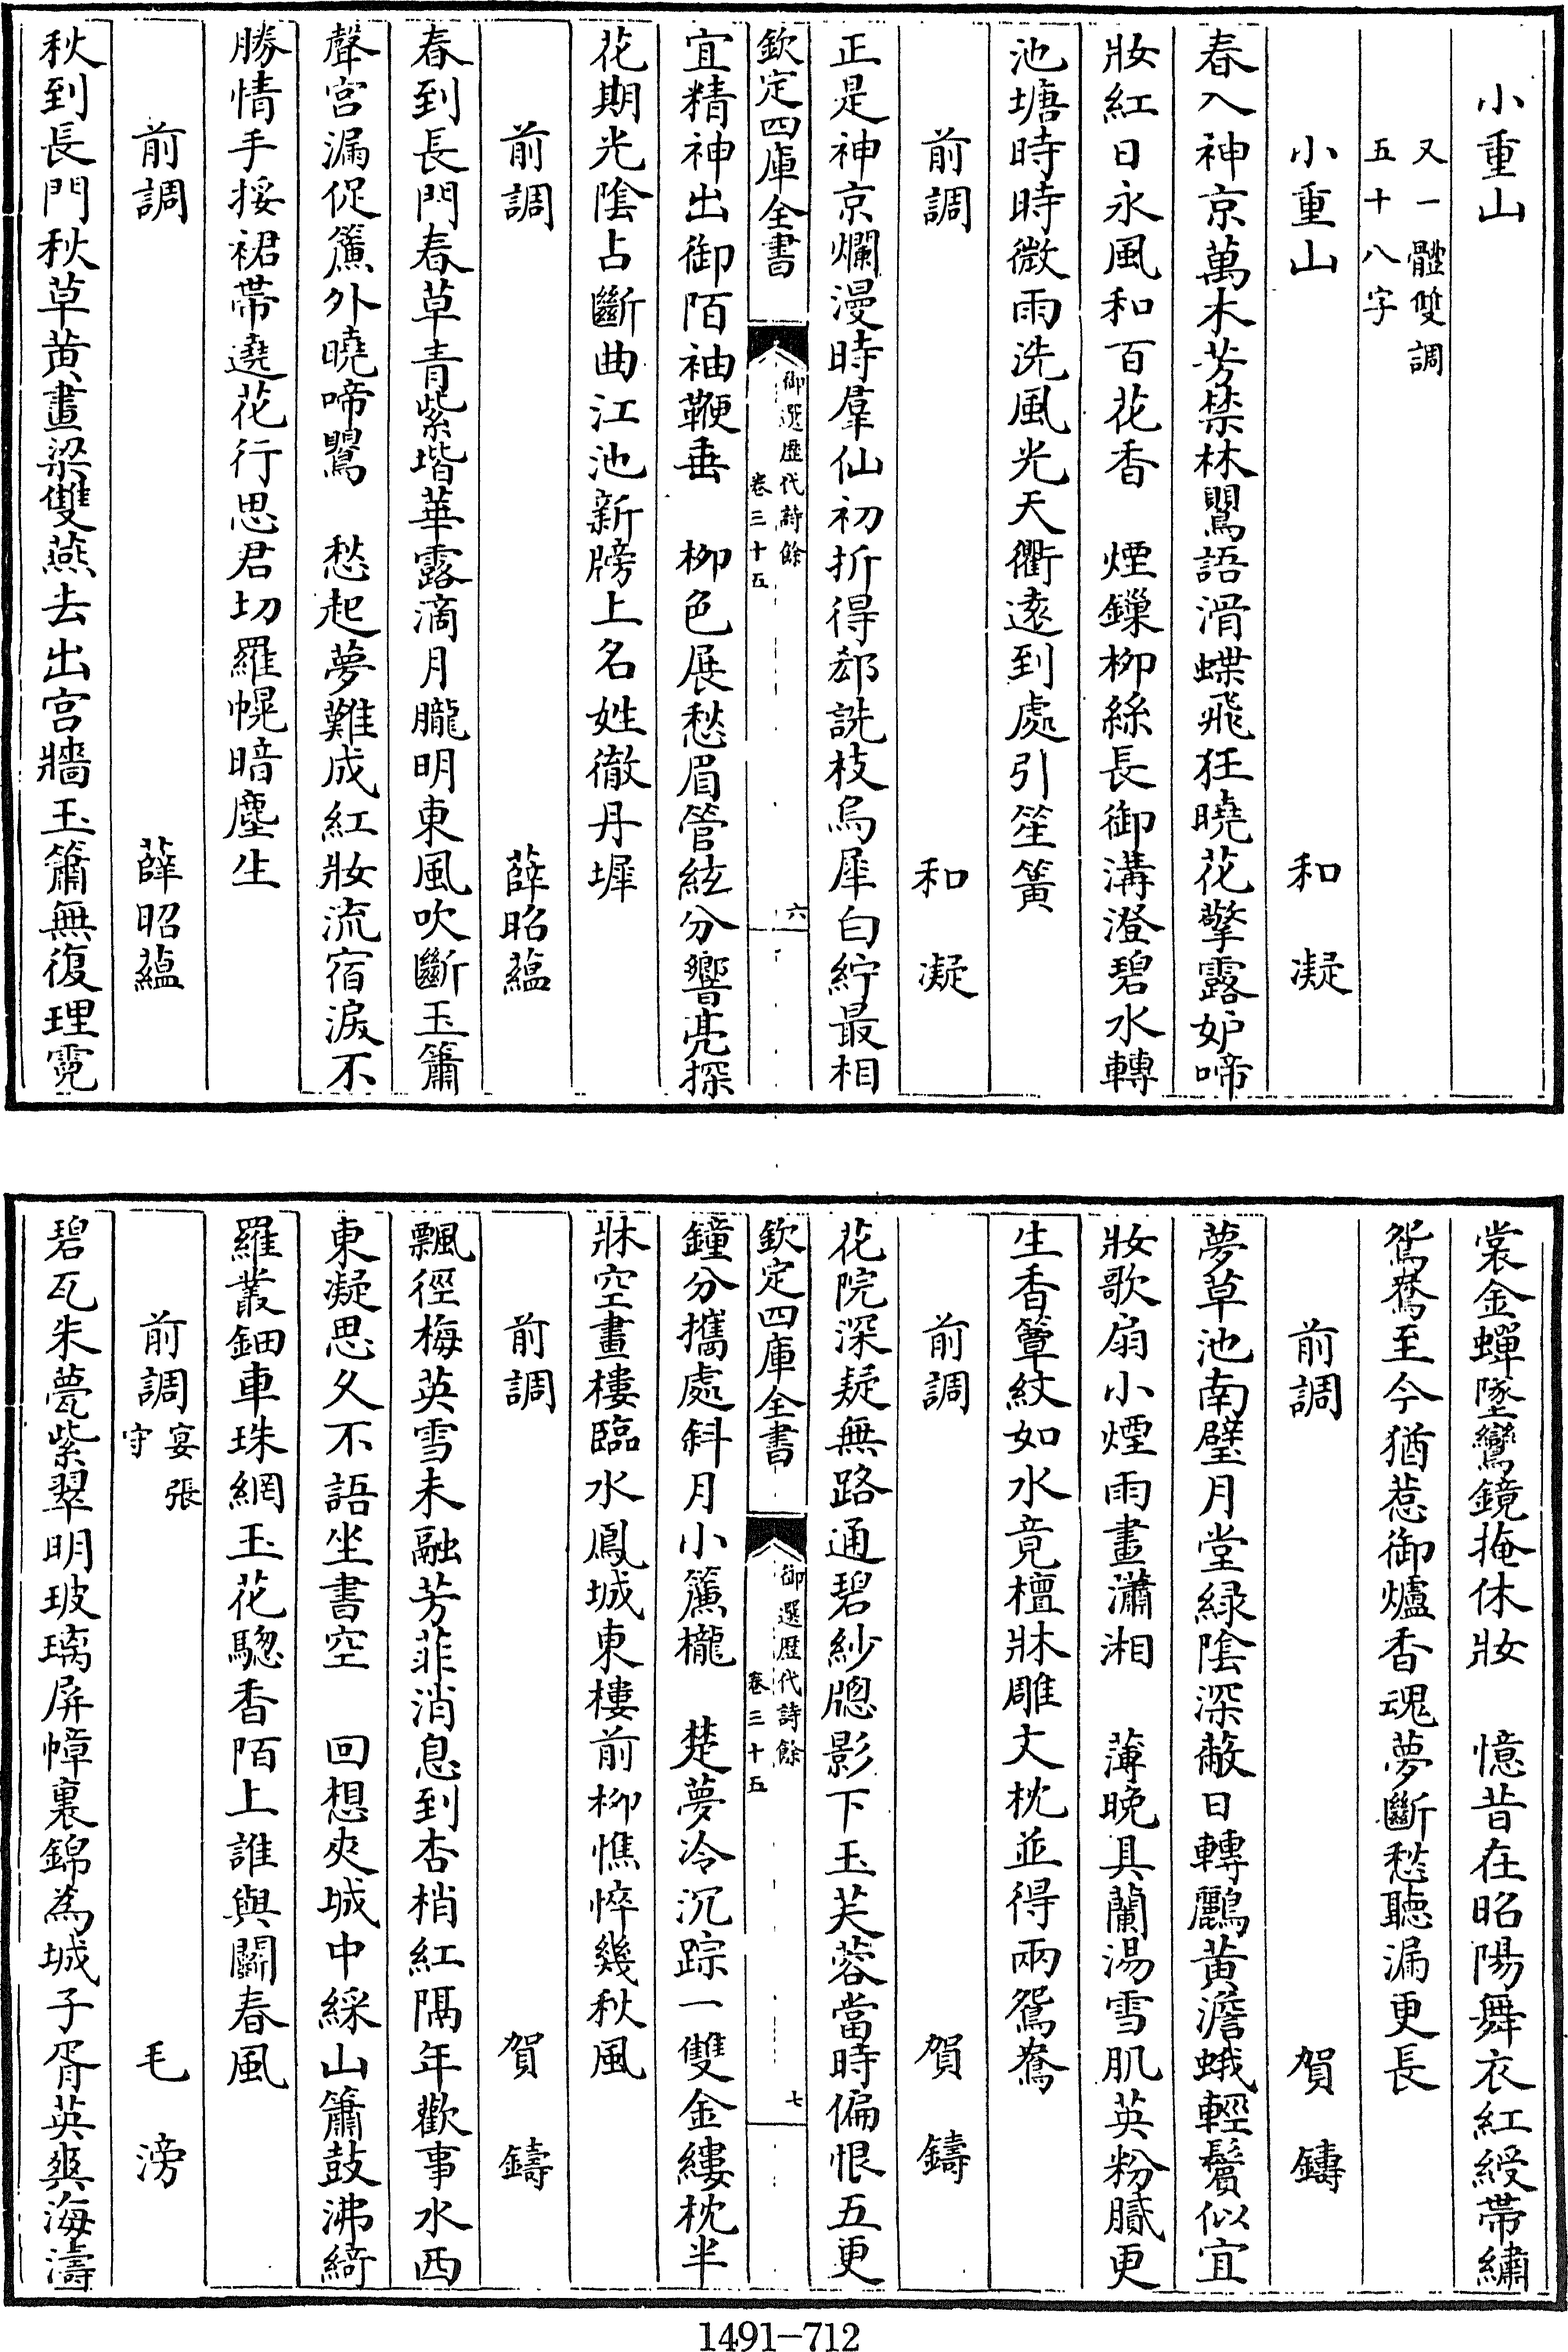 小重山
又一體雙調
五十八字
小重山　和凝
春入神京萬木芳禁林鸎語滑蝶飛狂曉花擎露妒啼
妝紅日永風和百花香　煙鏁柳絲長御溝澄碧水轉
池塘時時微雨洗風光天衢遠到處引笙簧
前調　和凝
正是神京爛漫時羣仙初折得郄詵枝烏犀白紵最相
欽定四庫全書
御選歷代詩餘
卷三十五
六
宜精神出御陌袖鞭垂　柳色展愁眉管絃分響亮探
花期光陰占斷曲江池新牓上名姓徹丹墀
前調　薛昭蘊
春到長門春草青紫堦華露滴月朧明東風吹斷玉簫
聲宮漏促簾外曉啼鸎　愁起夢難成紅妝流宿淚不
勝情手挼裙帶遶花行思君切羅幌暗塵生
前調　薛昭蘊
秋到長門秋草黃畫梁雙燕去出宮牆玉簫無復理霓
裳金蟬墜鸞鏡掩休妝　憶昔在昭陽舞衣紅綬帶繡
鴛鴦至今猶惹御爐香魂夢斷愁聽漏更長
前調　賀鑄
夢草池南璧月堂綠陰深蔽日轉鸝黃澹蛾輕鬢似宜
妝歌扇小煙雨畫瀟湘　薄晚具蘭湯雪肌英粉膩更
生香簟紋如水竟檀牀雕文枕並得兩鴛鴦
前調　賀鑄
花院深疑無路通碧紗牕影下玉芙蓉當時偏恨五更
欽定四庫全書
御選歷代詩餘
卷三十五
七
鐘分攜處斜月小簾櫳　楚夢冷沉踪一雙金縷枕半
牀空畫樓臨水鳳城東樓前柳憔悴幾秋風
前調　賀鑄
飄徑梅英雪未融芳菲消息到杏梢紅隔年歡事水西
東凝思久不語坐書空　回想夾城中綵山簫鼓沸綺
羅叢鈿車珠網玉花驄香陌上誰與鬬春風
前調　宴張
守　毛滂
碧瓦朱甍紫翠明玻璃屏幛裏錦為城子胥英爽海濤
1491—712